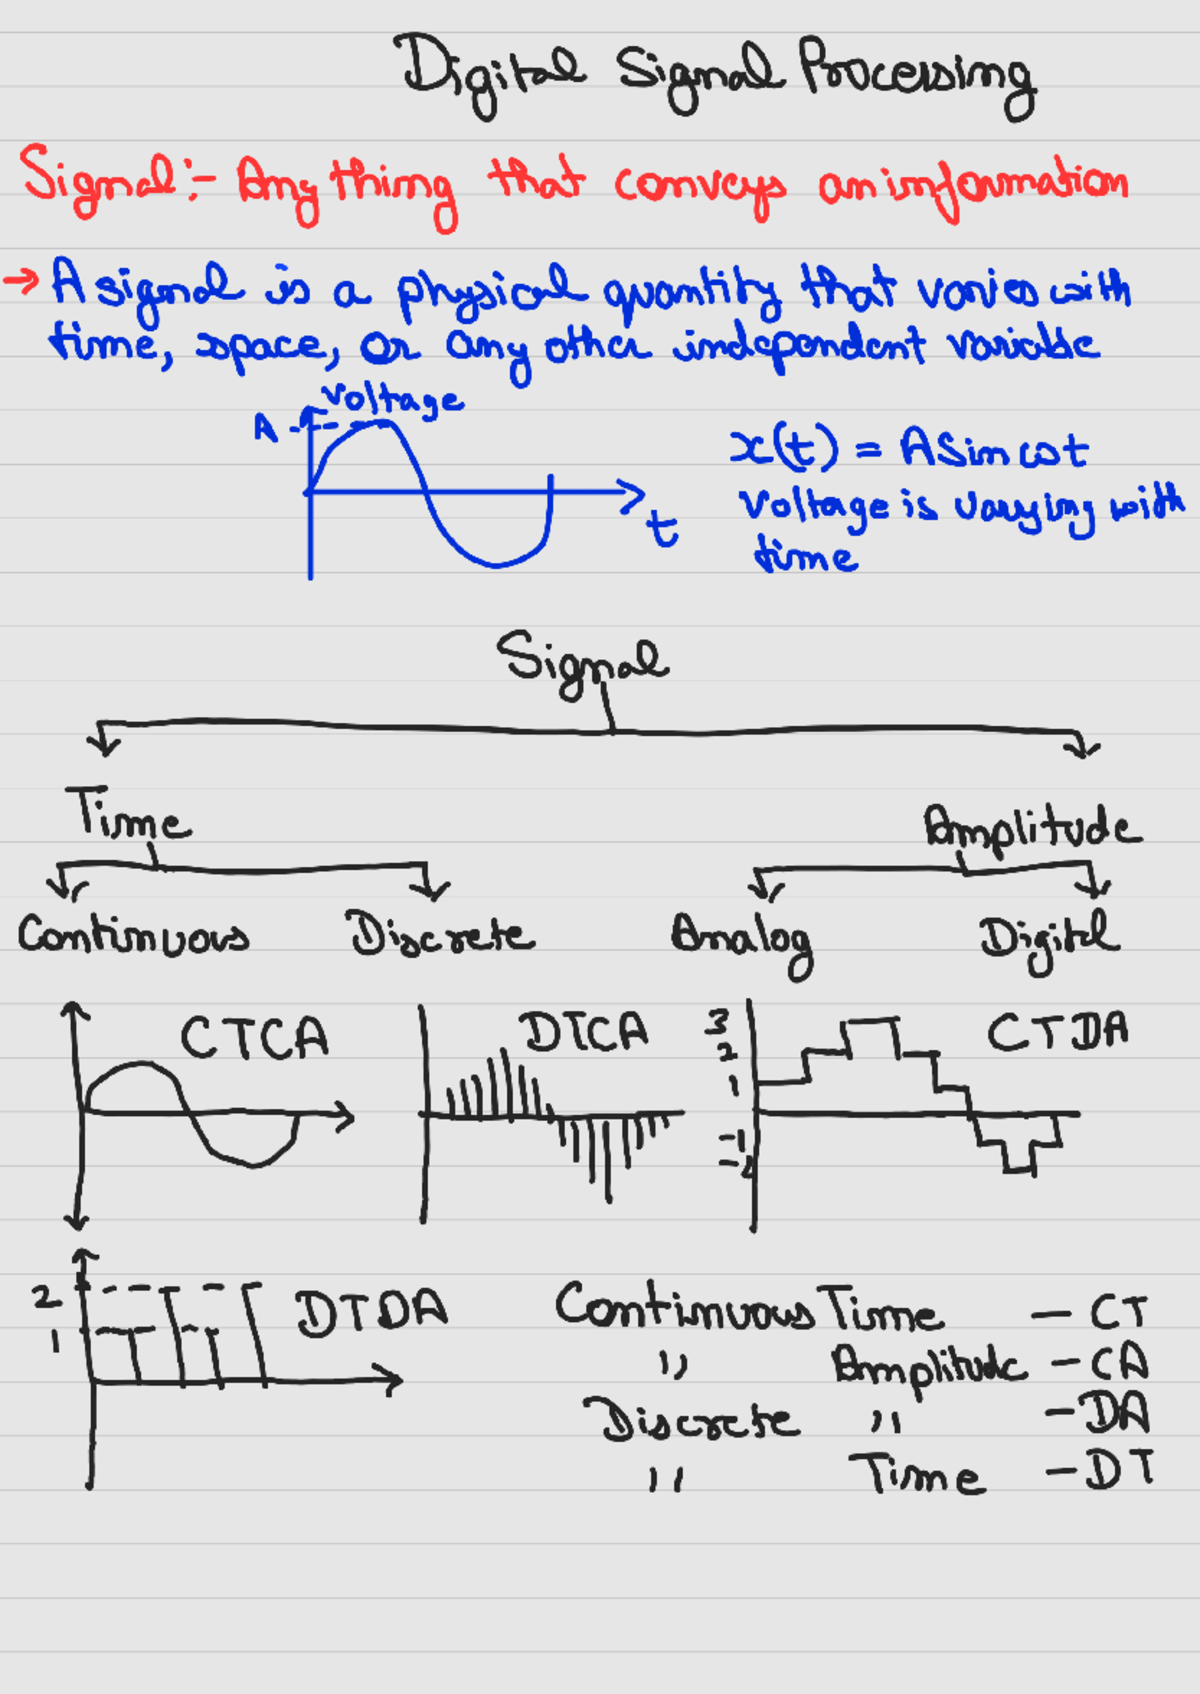 Digital Signal Processing
Signal:- Anything that conveys an information
→ A signal is a physical quantity that varies with
time, space, or any other independent variable
Voltage
A
t
x(t) = A Sin ωt
Voltage is varying with
time
Signal
Time
Amplitude
Continuous Discrete Analog Digital
CTCA
DTCA
3
2
1
-1
-2
CTDA
2
1
DTDA
Continuous Time - CT
" Amplitude - CA
Discrete " - DA
" Time - DT